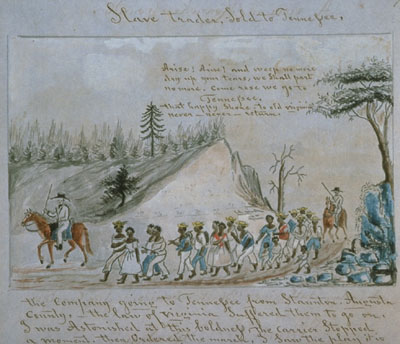 Slave trader, Sold to Tennessee,
Arise! Arise! and weep no more
dry up your tears, we shall part
no more. Come rose we go to
Tennessee,
that happy shore. to old virginia
never — never — return.
the Company going to Tennessee from Staunton, Augusta
County, – the law of virginia suffered them to go on.
I was Astonished at this boldness, the carrier Stopped
a moment, then Ordered the march, I Saw the play it is